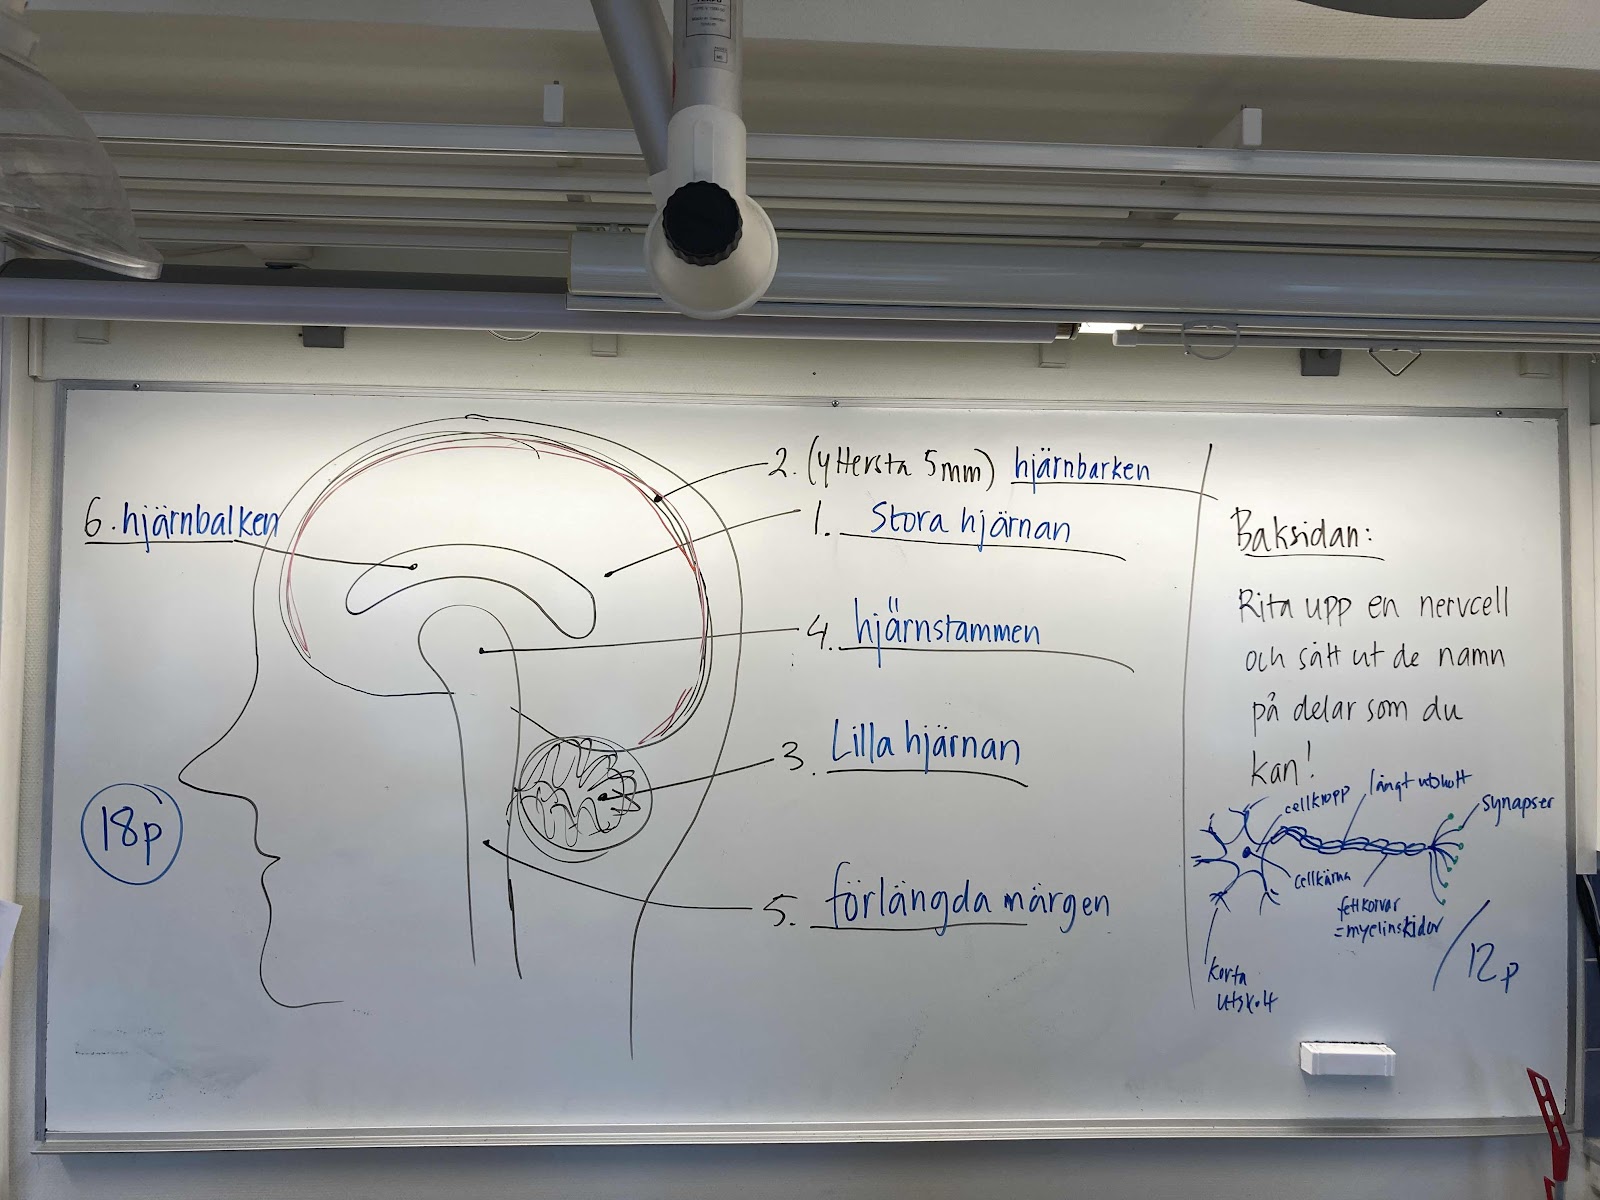 2. (yttersta 5mm) hjärnbarken
1. Stora hjärnan
6. hjärnbalken
4. hjärnstammen
3. Lilla hjärnan
5. förlängda märgen
18p
Baksidan:
Rita upp en nervcell
och sätt ut de namn
på delar som du
kan!
cellkropp
långt utskott
synapser
cellkärna
fettkorvar
=myelinskidor
korta
utskott
/12p